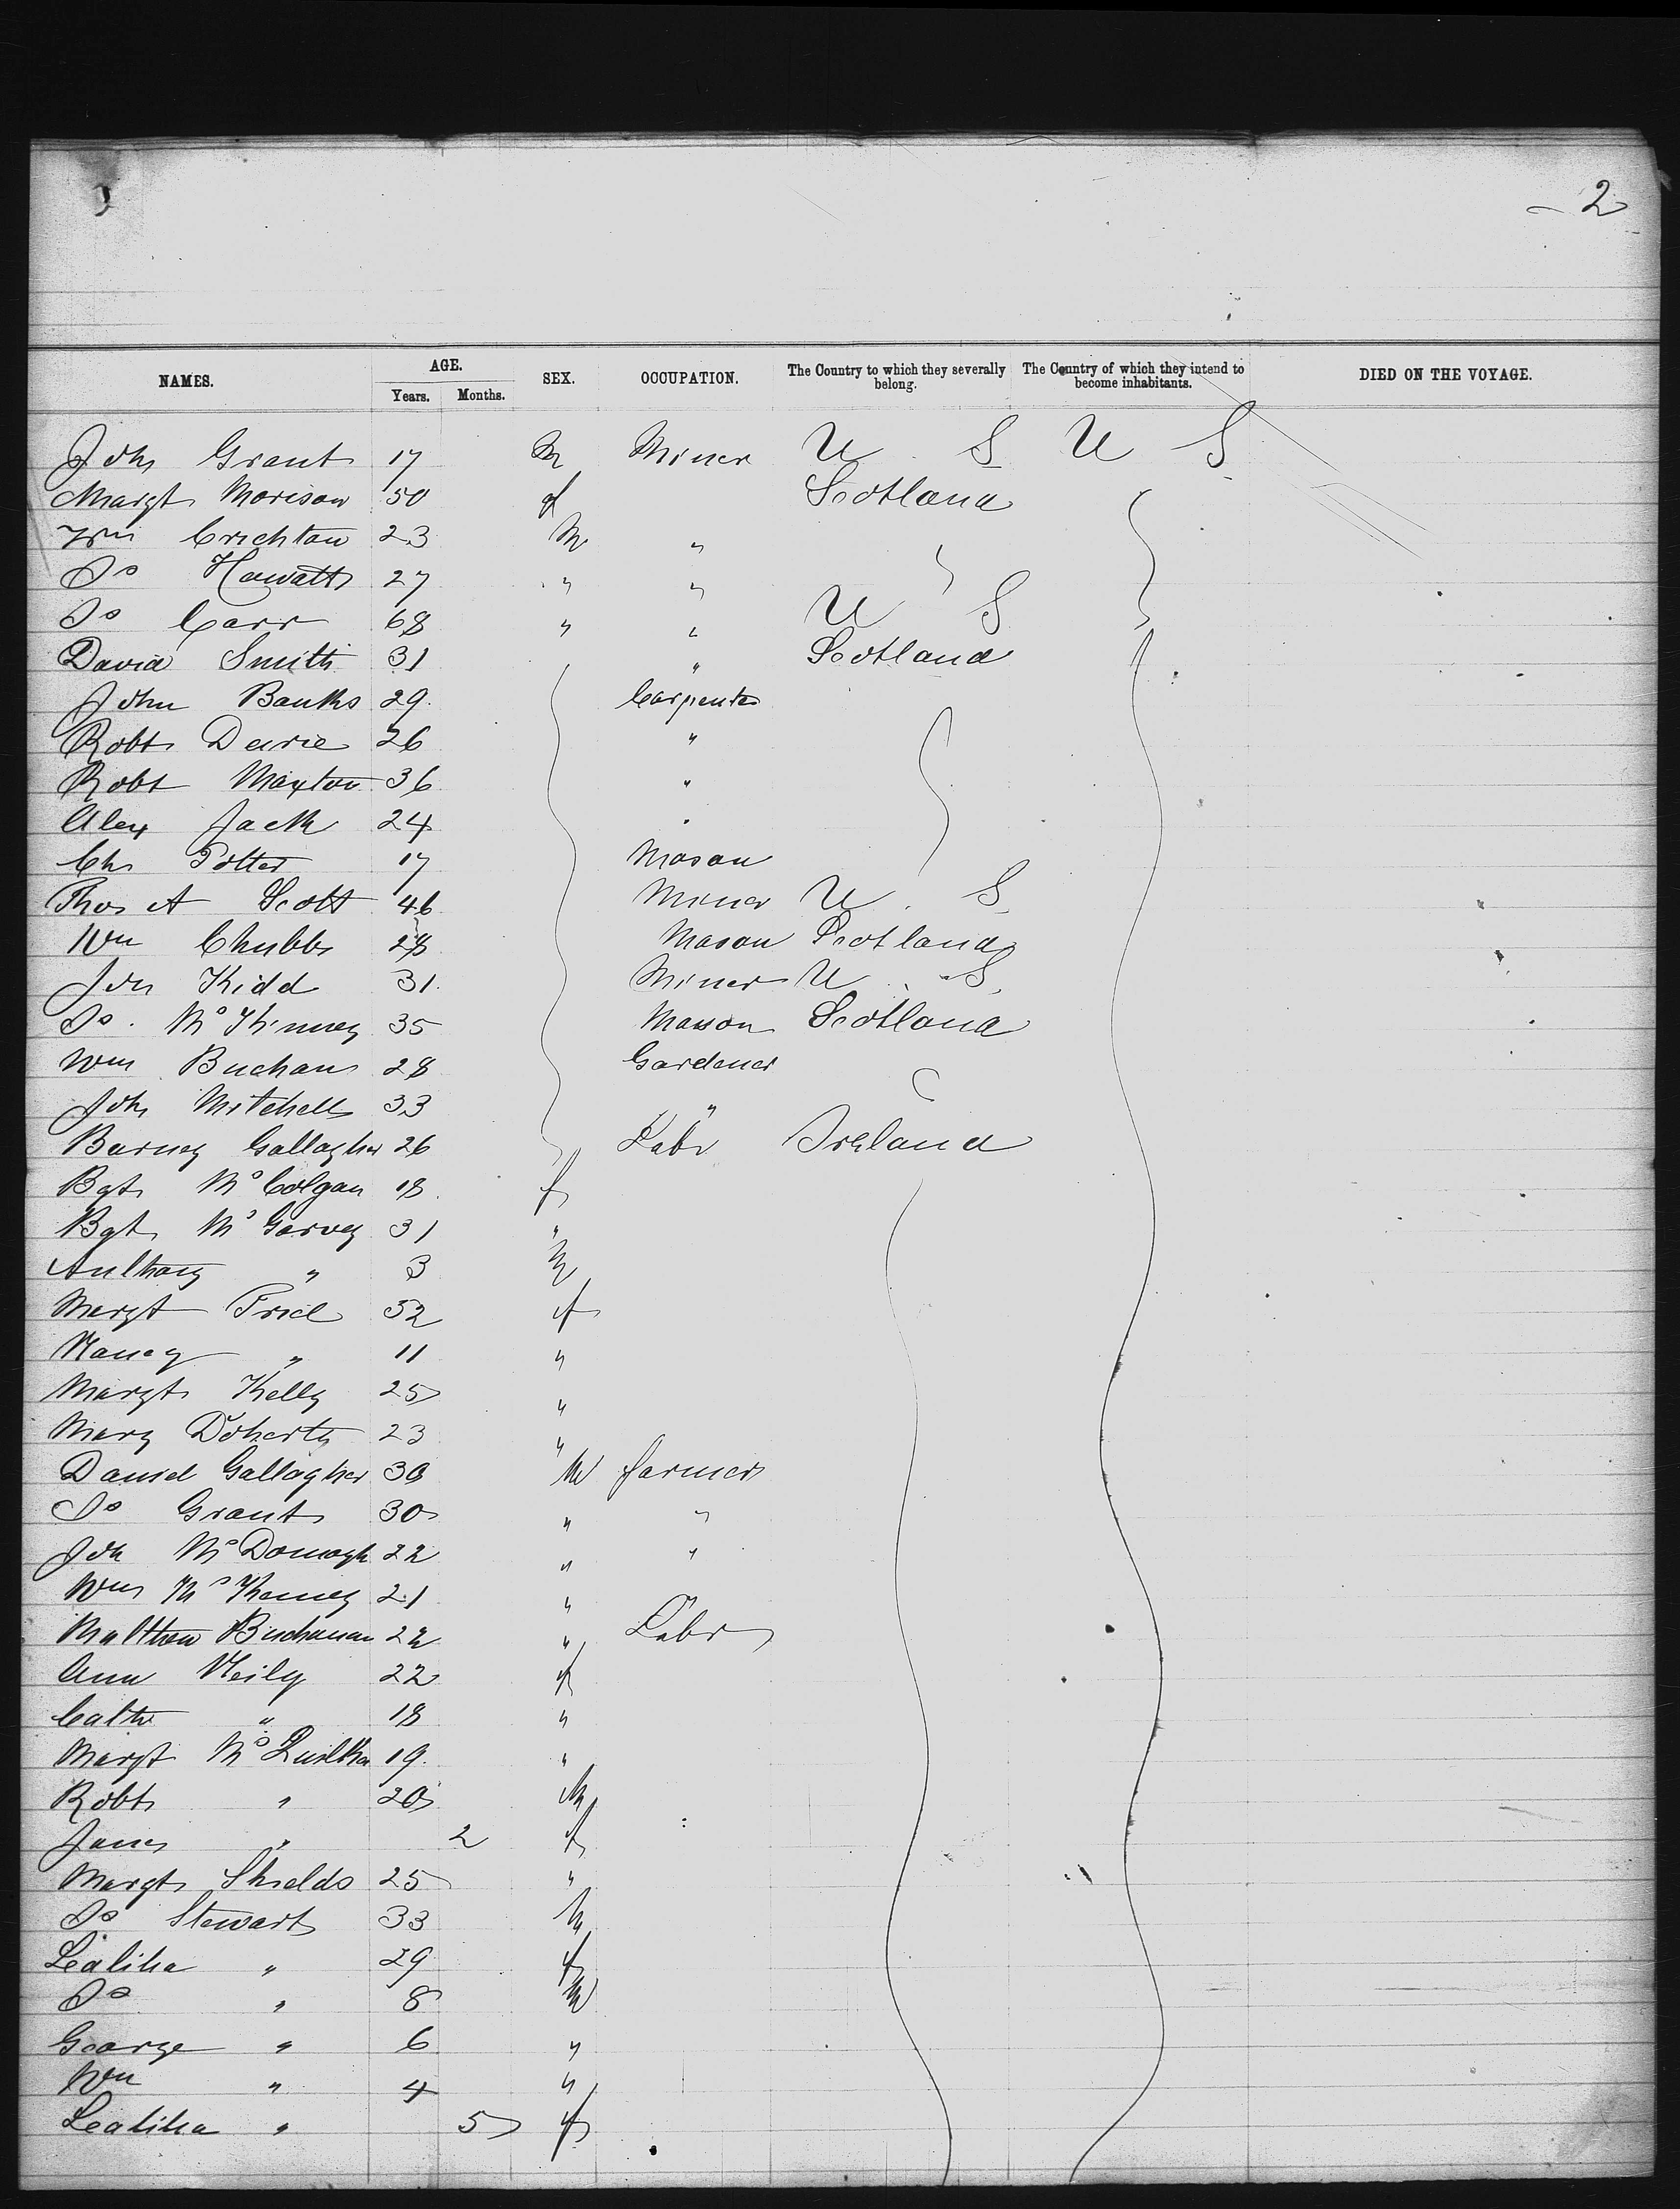 2
NAMES. AGE. Years. Months. SEX. OCCUPATION. The Country to which they severally belong. The Country of which they intend to become inhabitants. DIED ON THE VOYAGE.
Joh Grant 17 M Miner U S U S
Margt Morison 50 f Scotland
Wm Crichton 23 M "
Do Howatt 27 " "
Do Carr 68 " " U S
David Smith 31 " Scotland
John Banks 29 Carpenter
Robt Deirie 26 "
Robt Maxton 36 "
Alex Jack 24 "
Chs Potter 17 Mason
Thos A Scott 46 Miner U S
Wm Chubbs 28 Mason Scotland
Jon Kidd 31 Miner U S
Do McKinney 35 Masson Scotland
Wm Buchan 28 Gardener
Joh Mitchell 33 "
Barney Gallagher 26 Labr Ireland
Bgt McColgan 18 f
Bgt McGarvey 31 "
Anthony " 3 M
Margt Price 52 f
Nancy " 11 "
Margt Kelly 25 "
Mary Doherty 23 "
Daniel Gallagher 30 M farmer
Do Grant 30 " "
Joh McDonogh 22 " "
Wm McKenney 21 "
Matthew Buchanan 22 " Labr
Ann Neily 22 f
Cathe " 18 "
Margt 19 "
Robt " 20 M
Janes " 2 f
Margt Shields 25 "
Do Stewart 33 M
Lealiha " 29 f
Do " 8 M
George " 6 "
Wm " 4 "
Lealiha " 5 f